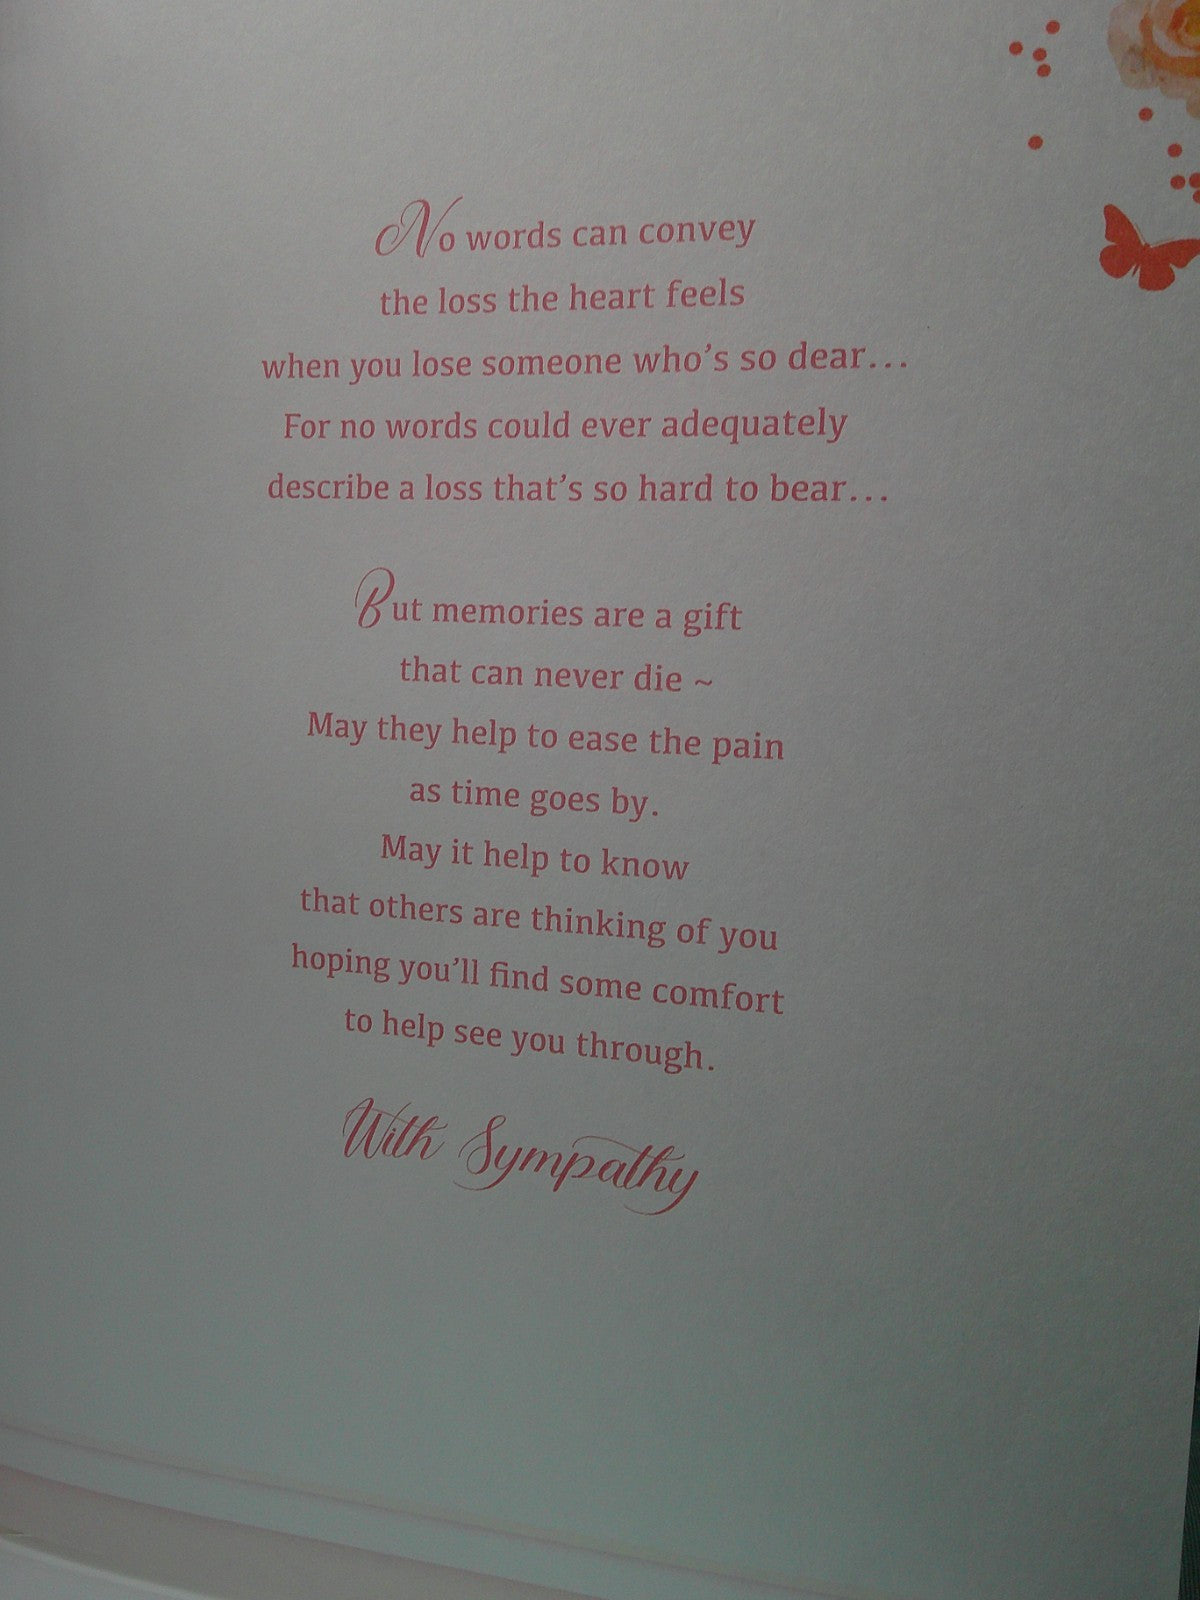 No words can convey
the loss the heart feels
when you lose someone who's so dear...
For no words could ever adequately
describe a loss that's so hard to bear...
But memories are a gift
that can never die ~
May they help to ease the pain
as time goes by.
May it help to know
that others are thinking of you
hoping you'll find some comfort
to help see you through.
With Sympathy